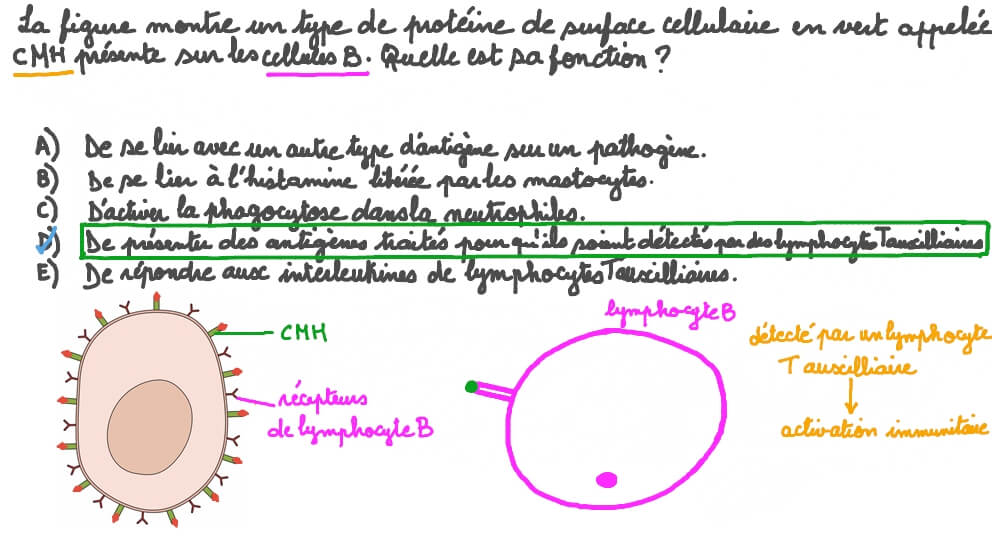 La figure montre un type de protéine de surface cellulaire en vert appelée
CMH présente sur les cellules B. Quelle est sa fonction ?
A) De se lier avec un autre type d'antigène sur un pathogène.
B) De se lier à l'histamine libérée par les mastocytes.
C) D'activer la phagocytose dans la neutrophiles.
D) De présenter des antigènes traités pour qu'ils soient détectés par des lymphocytes T auxilliaires
E) De répondre aux interleukines de lymphocytes T auxilliaires.
CMH
récepteurs
de lymphocyte B
lymphocyte B
détecté par un lymphocyte
T auxilliaire
activation immunitaire